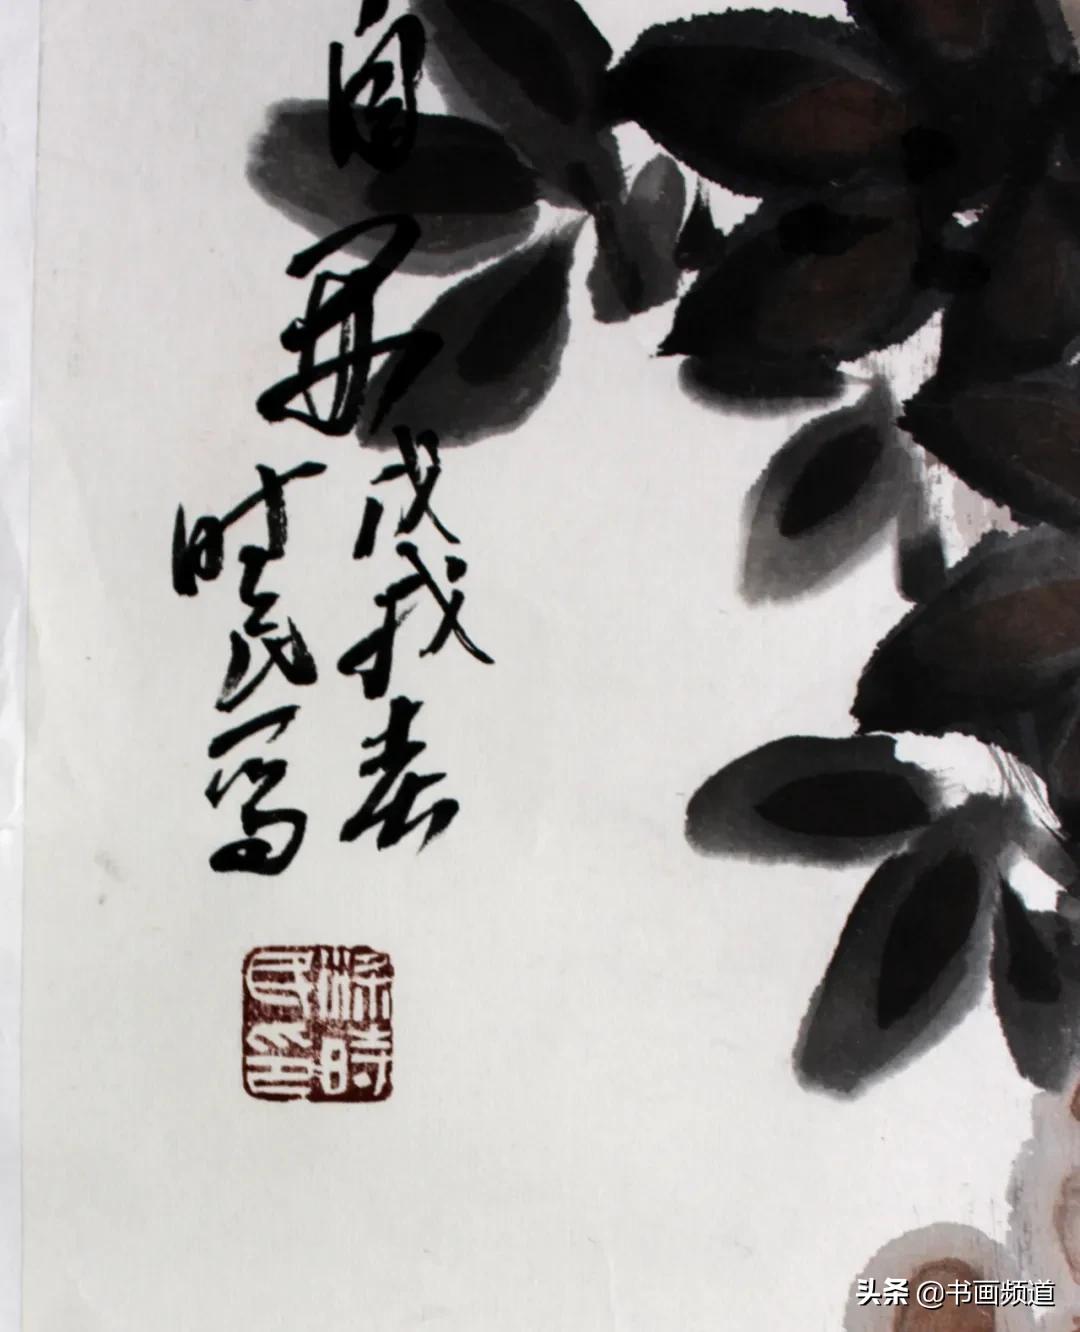 自
戊戌春
时民写
時
民印
头条 @书画频道